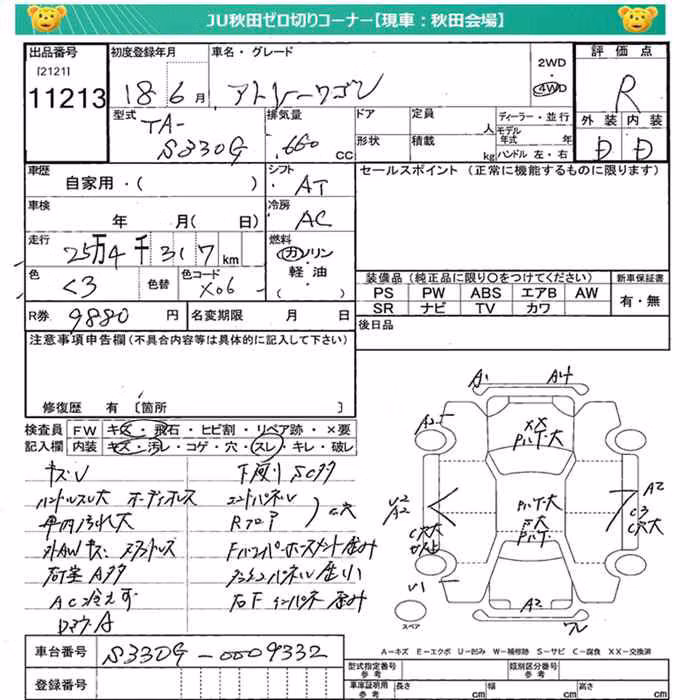 JU秋田ゼロ切りコーナー【現車：秋田会場】
出品番号
[2121]
11213
初度登録年月
18 6月
車名・グレード
アトレーワゴン
2WD
4WD
評価点
R
外装 内装
D D
型式
TA-
S330G
排気量
.660 cc
ドア
形状
定員 人
積載 kg
ディーラー・並行
モデル年式 年
ハンドル 左・右
車歴
自家用・( )
シフト
AT
セールスポイント (正常に機能するものに限ります)
車検
年 月( 日)
冷房
AC
走行
25万4千317km
燃料
ガソリン
軽油・
( )
色
色替
色コード
X06
装備品 (純正品に限り○をつけてください)
PS PW ABS エアB AW
SR ナビ TV カワ
新車保証書
有・無
R券 9880円
名変期限 月 日
後日品
注意事項申告欄(不具合内容等は具体的に記入して下さい)
修復歴 有〔箇所 〕
検査員記入欄
FW キズ・飛石・ヒビ割・リペア跡・×要
内装 キズ・汚レ・コゲ・穴・スレ・キレ・破レ
キズU
下廻りSC多
ハンドルスレ大 オーディオレス
エンドパネル
車内汚れ大
Rフロア
C穴
荷室A多
AC冷えず
A1 A4
XX
A2
A2
C3
C穴大
U2
A2
C穴大
U1
A2
スペア
A－キズ E－エクボ U－凹み W－補修跡 S－サビ C－腐食 XX－交換済
車台番号 S330G-0009332
登録番号
型式指定番号 参考
類別区分番号 参考
車庫証明用 参考
長さ cm 幅 cm 高さ cm